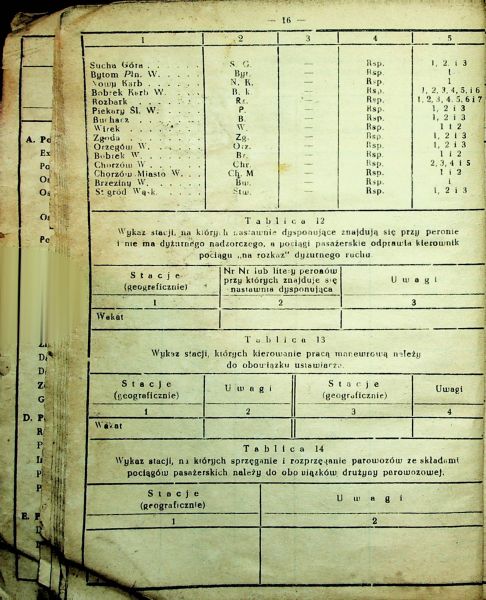 — 16 —
1 2 3 4 5
Sucha Góra . . . . . S. G. — Rsp. 1, 2 i 3
Bytom Płn. W. . . . . Byt. — Rsp. 1
Nowy Karb . . . . . N. K. — Rsp. 1
Bobrek Karb W. . . . B. k. — Rsp. 1, 2, 3, 4, 5, i 6
Rozbark . . . . . Rz. — Rsp. 1, 2, 3, 4, 5, 6 i 7
Piekary Śl. W. . . . P. — Rsp. 1, 2 i 3
Buchacz . . . . . B. — Rsp. 1, 2 i 3
Wirek . . . . . W. — Rsp. 1 i 2
Zgoda . . . . . Zg. — Rsp. 1, 2 i 3
Orzegów W. . . . . Orz. — Rsp. 1, 2 i 3
Bobrek W. . . . . Br. — Rsp. 1 i 2
Chorzów W. . . . . Chr. — Rsp. 2, 3, 4 i 5
Chorzów Miasto W. . . . Ch. M — Rsp. 1 i 2
Brzeziny W. . . . . Bw. — Rsp. 1
Stągród Wąsk. . . . . Stw. — Rsp. 1, 2 i 3
Tablica 12
Wykaz stacji, na których nastawnie dysponujące znajdują się przy peronie
i nie ma dyżurnego nadzorczego, a pociągi pasażerskie odprawia kierownik
pociągu „na rozkaz” dyżurnego ruchu.
Stacje
(geograficznie)
Nr Nr lub litery peronów
przy których znajduje się
nastawnia dysponująca
Uwagi
1 2 3
Wakat
Tablica 13
Wykaz stacji, których kierowanie pracą manewrową należy
do obowiązku ustawiacza.
Stacje
(geograficznie)
Uwagi
Stacje
(geograficznie)
Uwagi
1 2 3 4
Wakat
Tablica 14
Wykaz stacji, na których sprzęganie i rozprzęganie parowozów ze składami
pociągów pasażerskich należy do obowiązków drużyny parowozowej.
Stacje
(geograficznie)
Uwagi
1 2
A. Po
Ex
Po
Os
Os
Os
Po
D. P
E. P